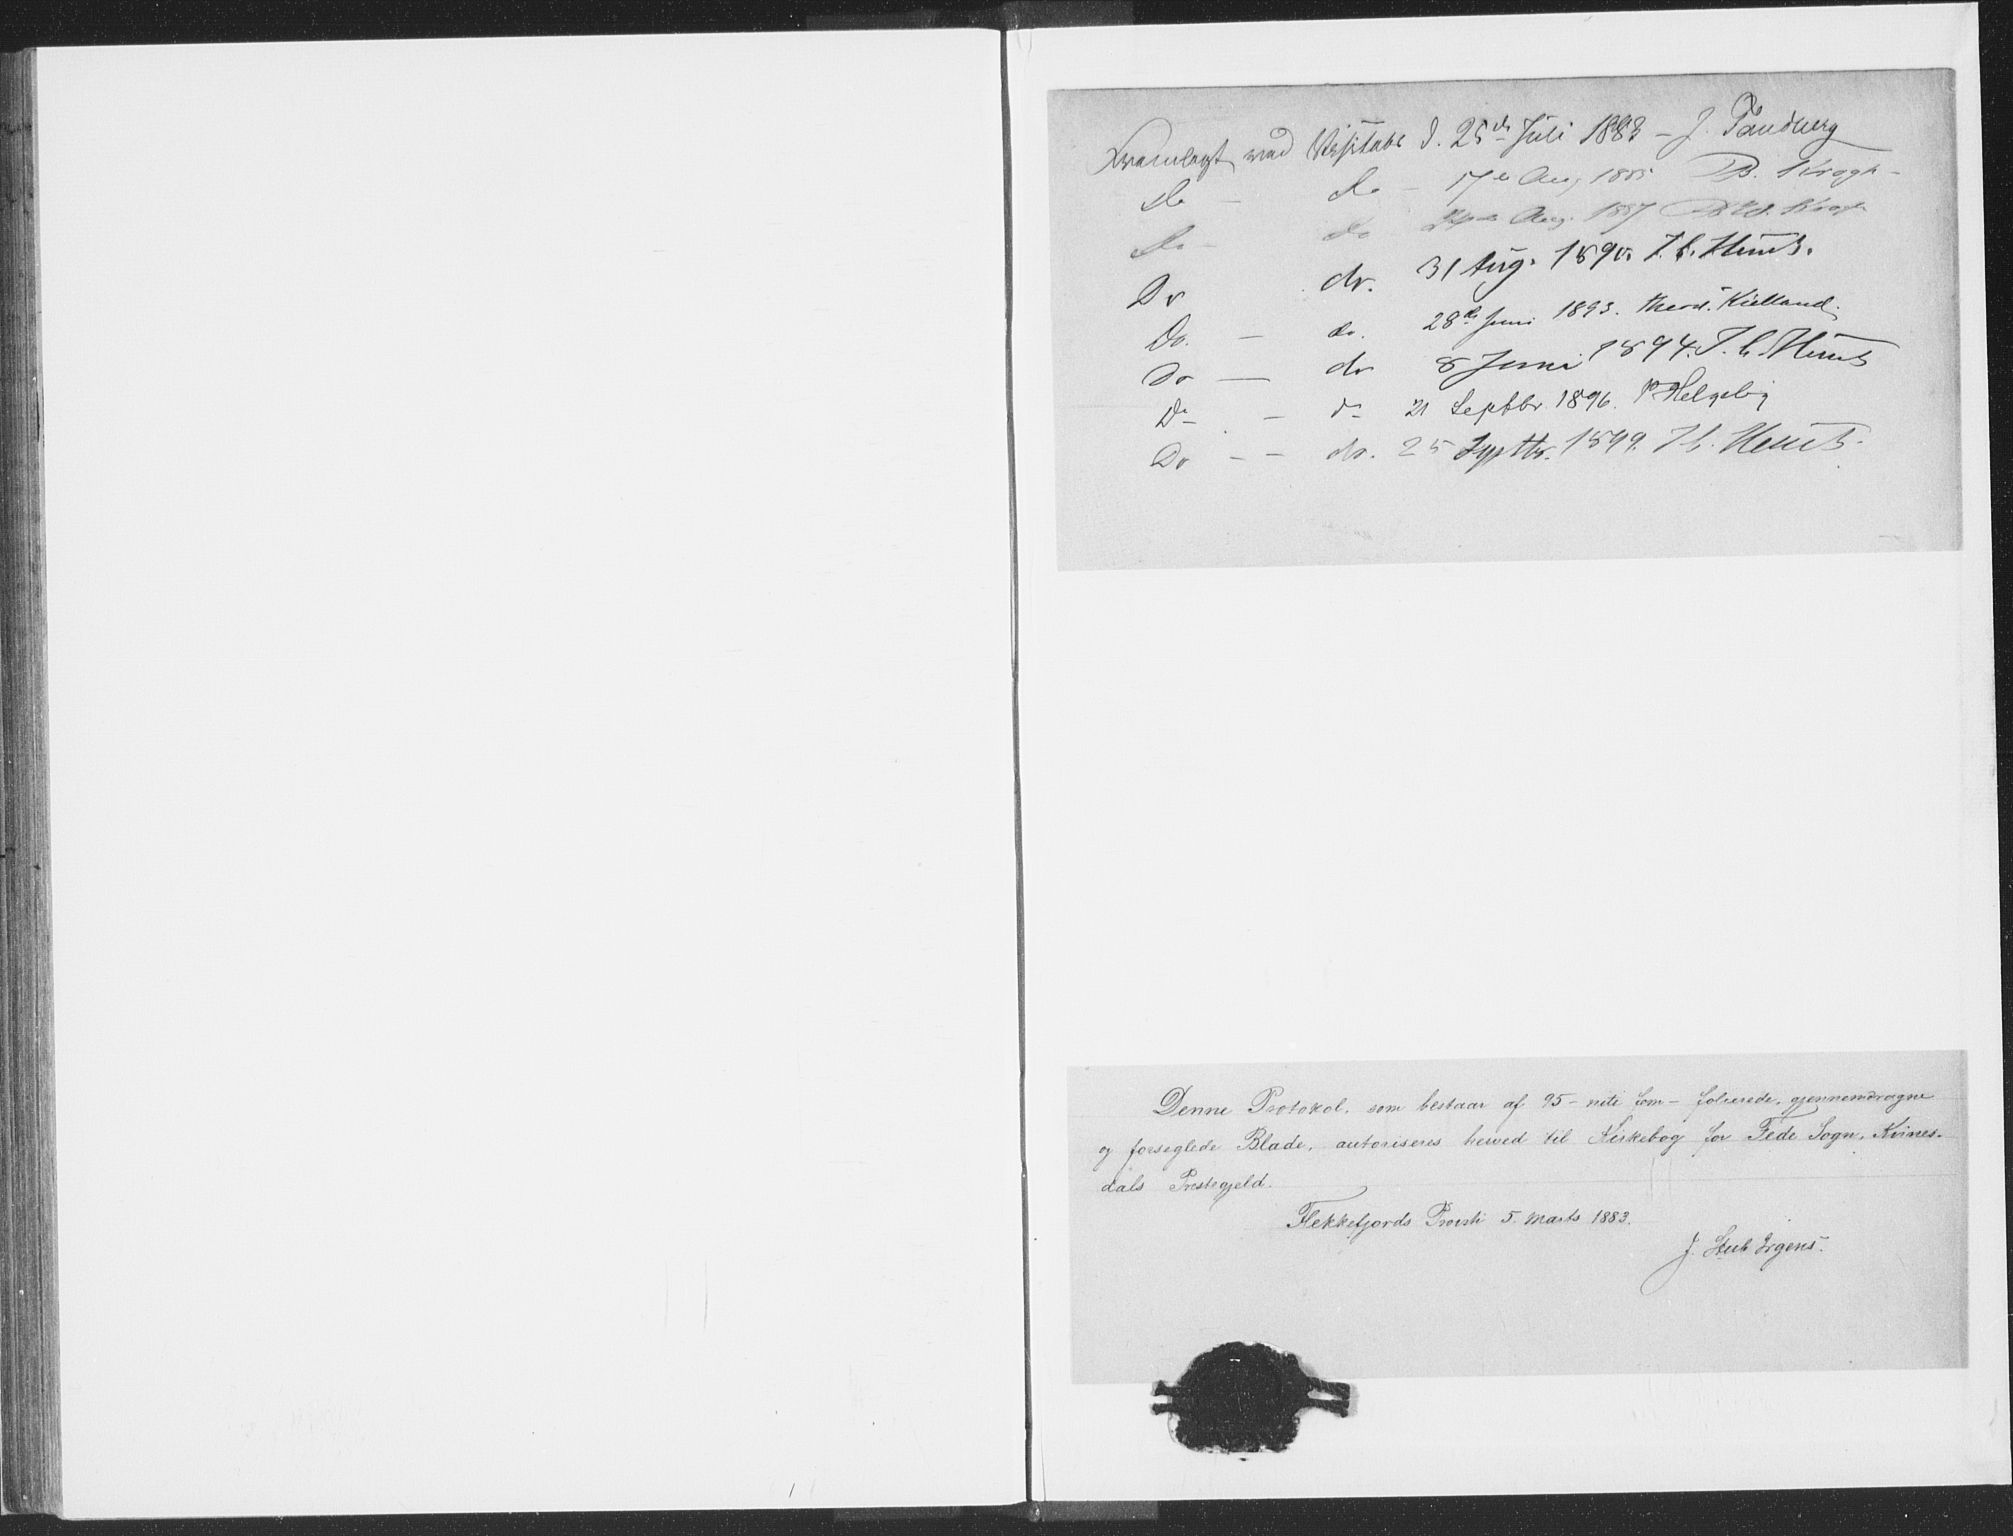 Fremlagt ved Visitats d. 25de Juli 1883 - J. Tandberg
Do - do - 17de Aug 1885 Kragh -
Do - do Aug. 1887 Kragh
Do do. 31 Aug. 1890. J. C. Heuch.
Do. - do. 28de Juni 1893. Theod. Kielland.
Do - do 8 Juni 1894. J. C. Heuch
Do - do 21 Septbr. 1896. P Helgeby
Do - - do. 25 Septbr. 1899. J. C. Heuch.
Denne Protokol, som bestaar af 95 - niti fem - folierede, gjennemdragne
og forseglede Blade, autoriseres herved til Kirkebog for Fede Sogn, Kvines-
dals Prestegjeld.
Flekkefjords Provsti 5. Marts 1883.
J. Stub Irgens.